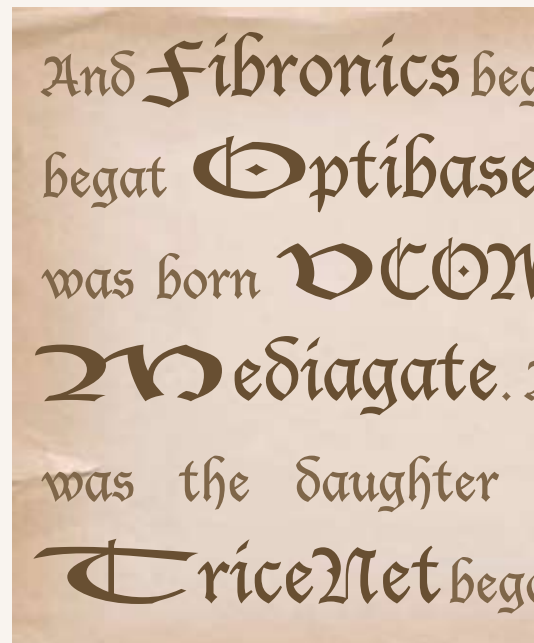 And Fibronics beg
begat Optibase
was born VCON
Mediagate.
was the daughter
TriceNet bega